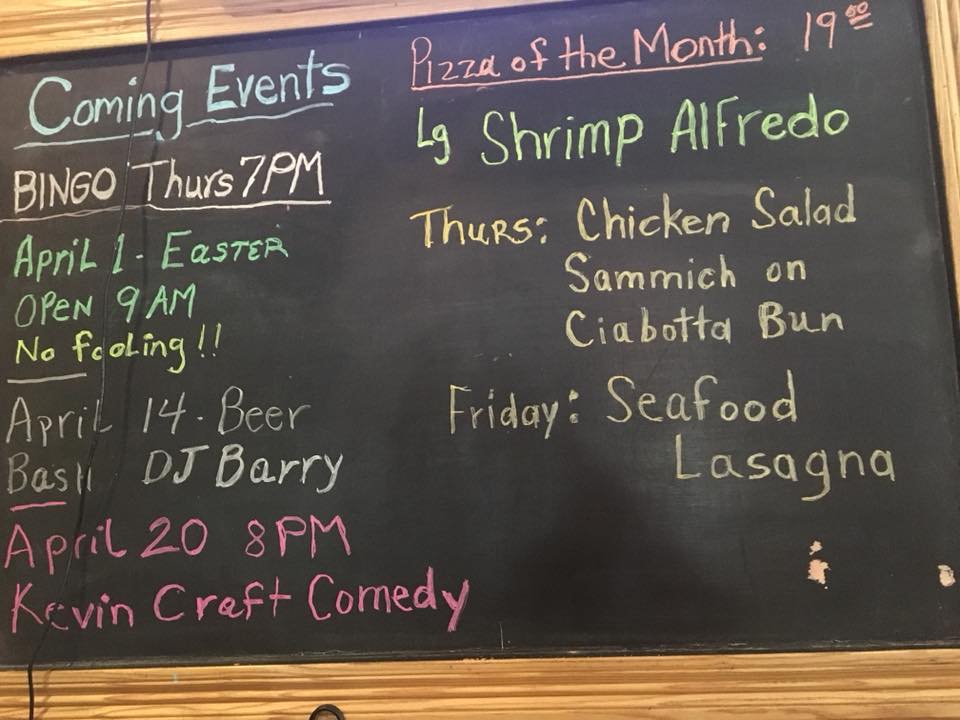 Coming Events
BINGO Thurs 7PM
April 1 - EASTER
OPEN 9 AM
No fooling!!
April 14 - Beer
Bash DJ Barry
April 20 8PM
Kevin Craft Comedy
Pizza of the Month: 19.00
Lg Shrimp Alfredo
Thurs: Chicken Salad
Sammich on
Ciabotta Bun
Friday: Seafood
Lasagna